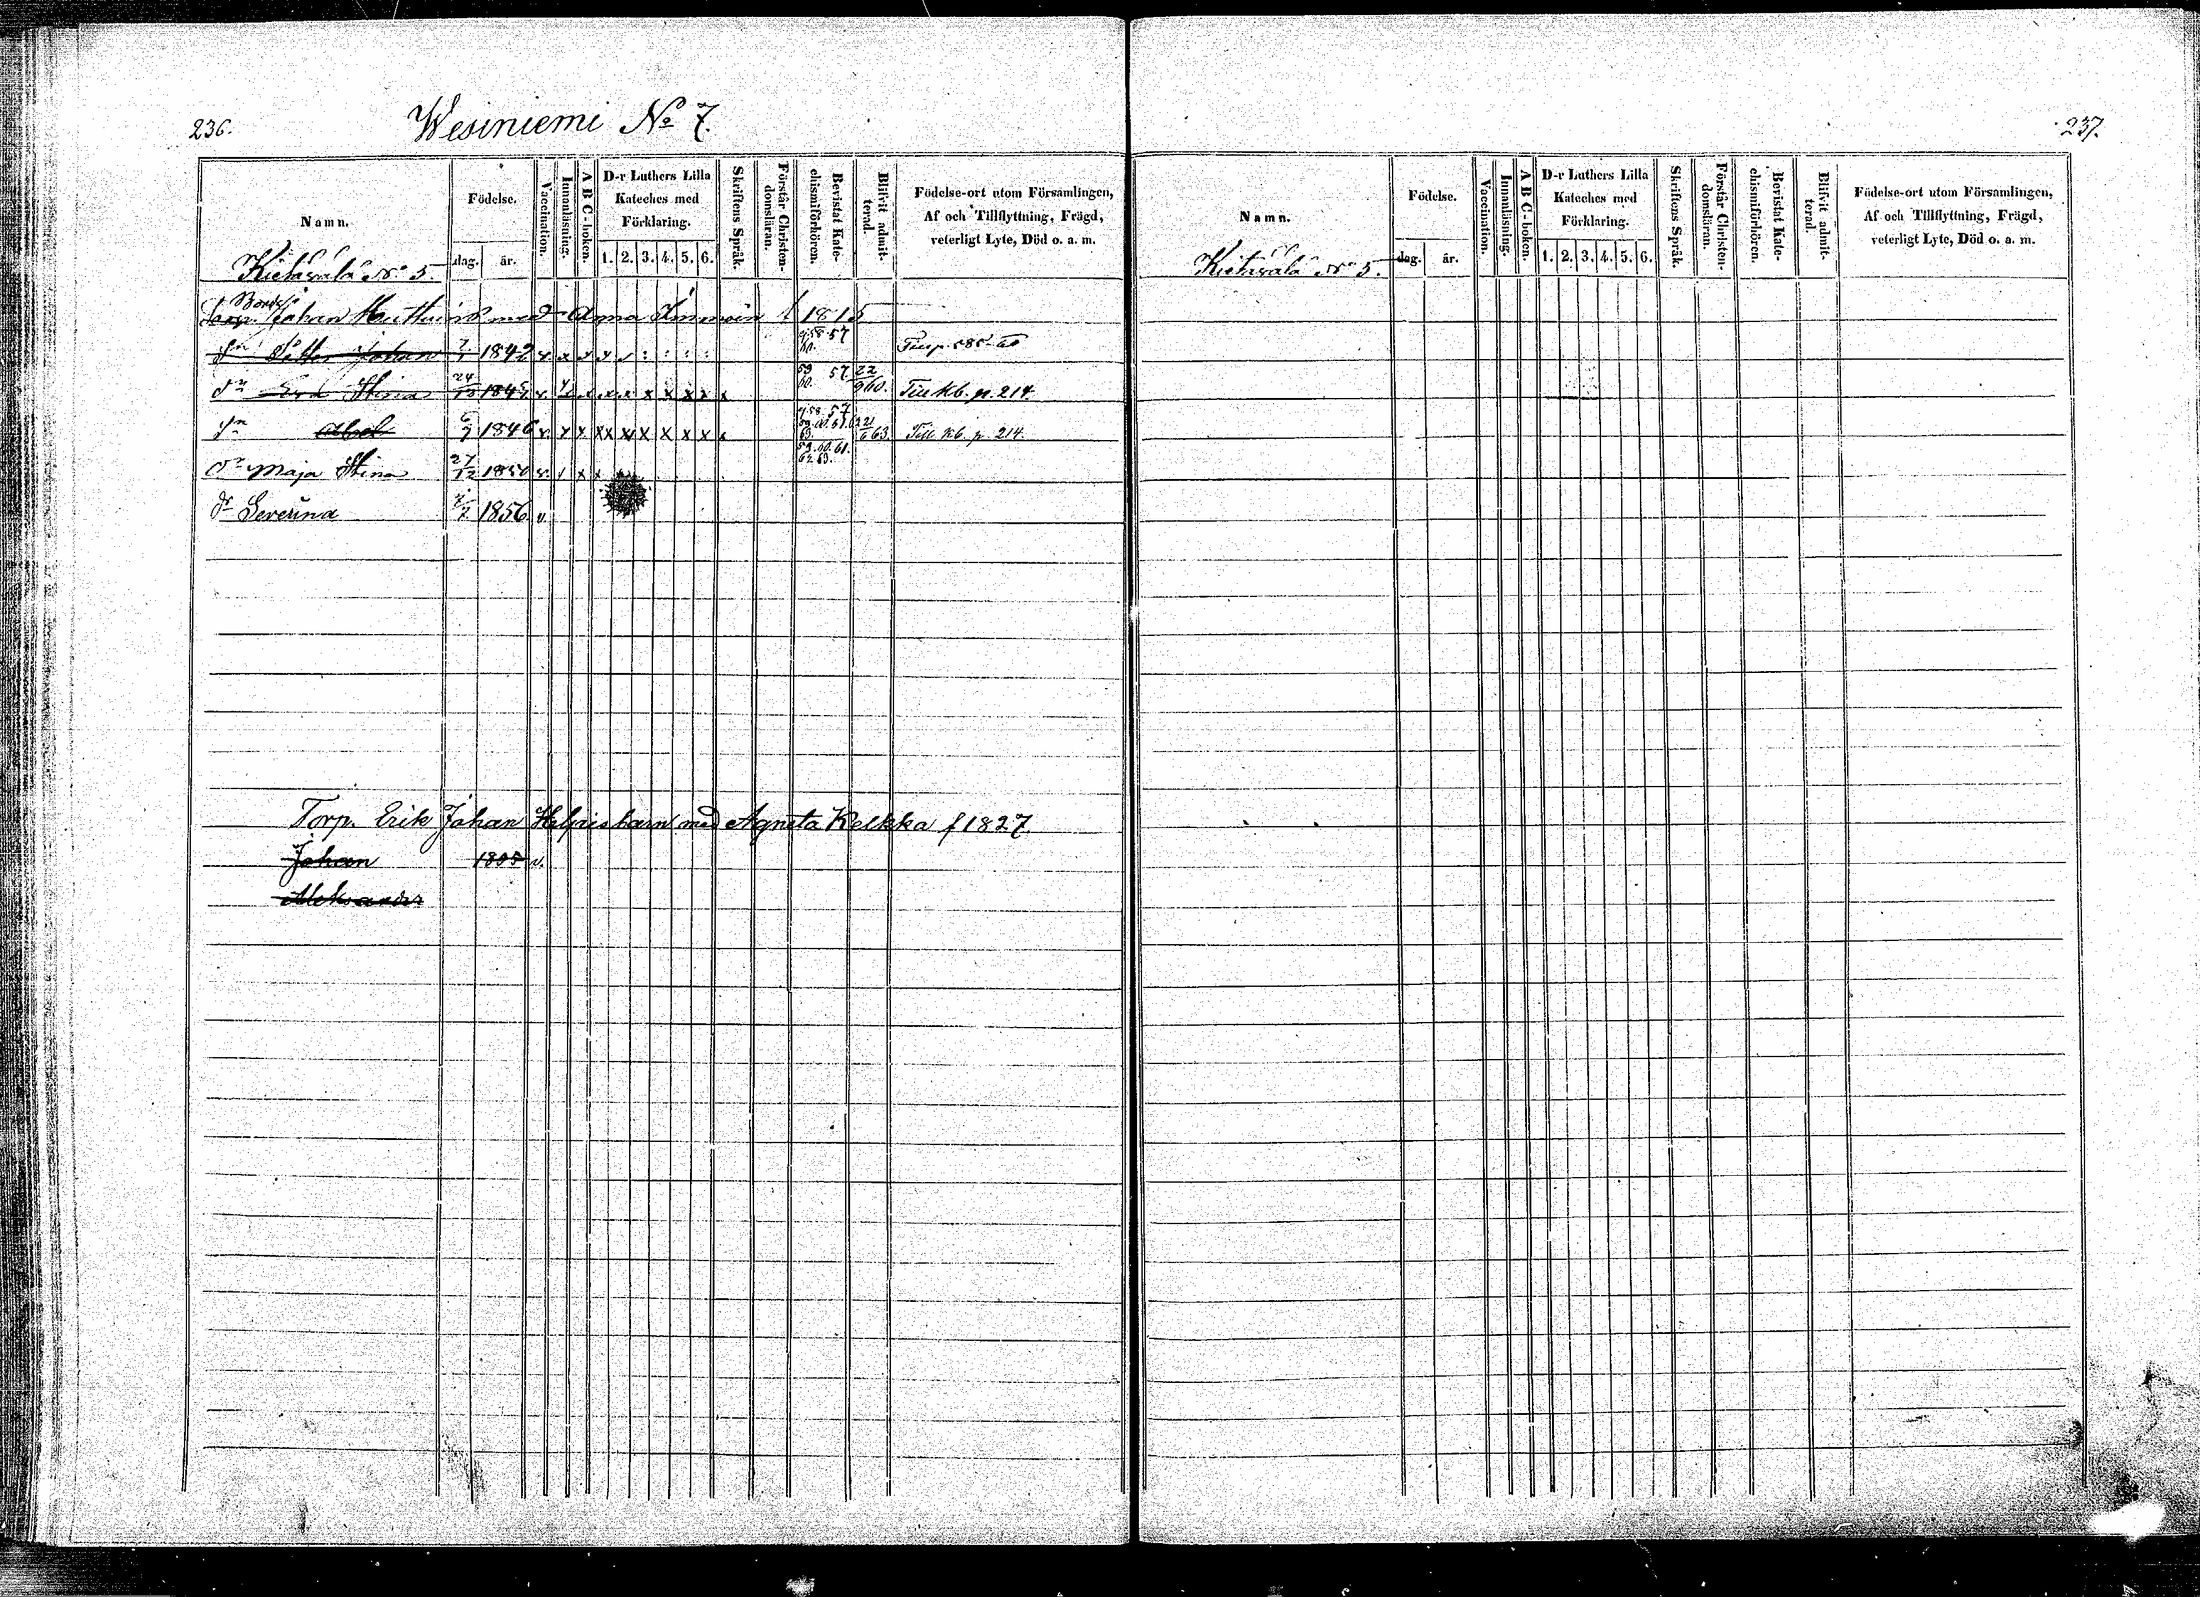 236.
Wesiniemi No 7.
Namn.
Födelse.
dag. år.
Vaccination.
Innanläsning.
A B C-boken.
D-r Luthers Lilla Kateches med Förklaring.
1. 2. 3. 4. 5. 6.
Skriftens Språk.
Förstår Christendomsläran.
Bevistat Katechismiförhören.
Blifvit admitterad.
Födelse-ort utom Församlingen, Af och Tillflyttning, Frägd, veterligt Lyte, Död o. a. m.
Kietäwälä No 5.
Johan med Anna f 1815
Sn Petter Johan 1842 v. 57 60.
Dr Stina 24 1845 v. x x x x x x x x x 59 60. 57. 22/9 60. Till kb. p. 214
Sn Abel 6/7 1846 v. x x x x x x x x x 57 63. 21/6 63. Till kb. p. 214.
Dr Maja Stina 27/12 1850 v. x x x 59. 60. 61. 62 63.
dr Severina 7 1856 v.
Torp. Erik Johan med Agneta Kelkka f 1827
Johan v.
Aleksander
237.
Namn.
Födelse.
dag. år.
Vaccination.
Innanläsning.
A B C-boken.
D-r Luthers Lilla Kateches med Förklaring.
1. 2. 3. 4. 5. 6.
Skriftens Språk.
Förstår Christendomsläran.
Bevistat Katechismiförhören.
Blifvit admitterad.
Födelse-ort utom Församlingen, Af och Tillflyttning, Frägd, veterligt Lyte, Död o. a. m.
Kietäwälä No 5.